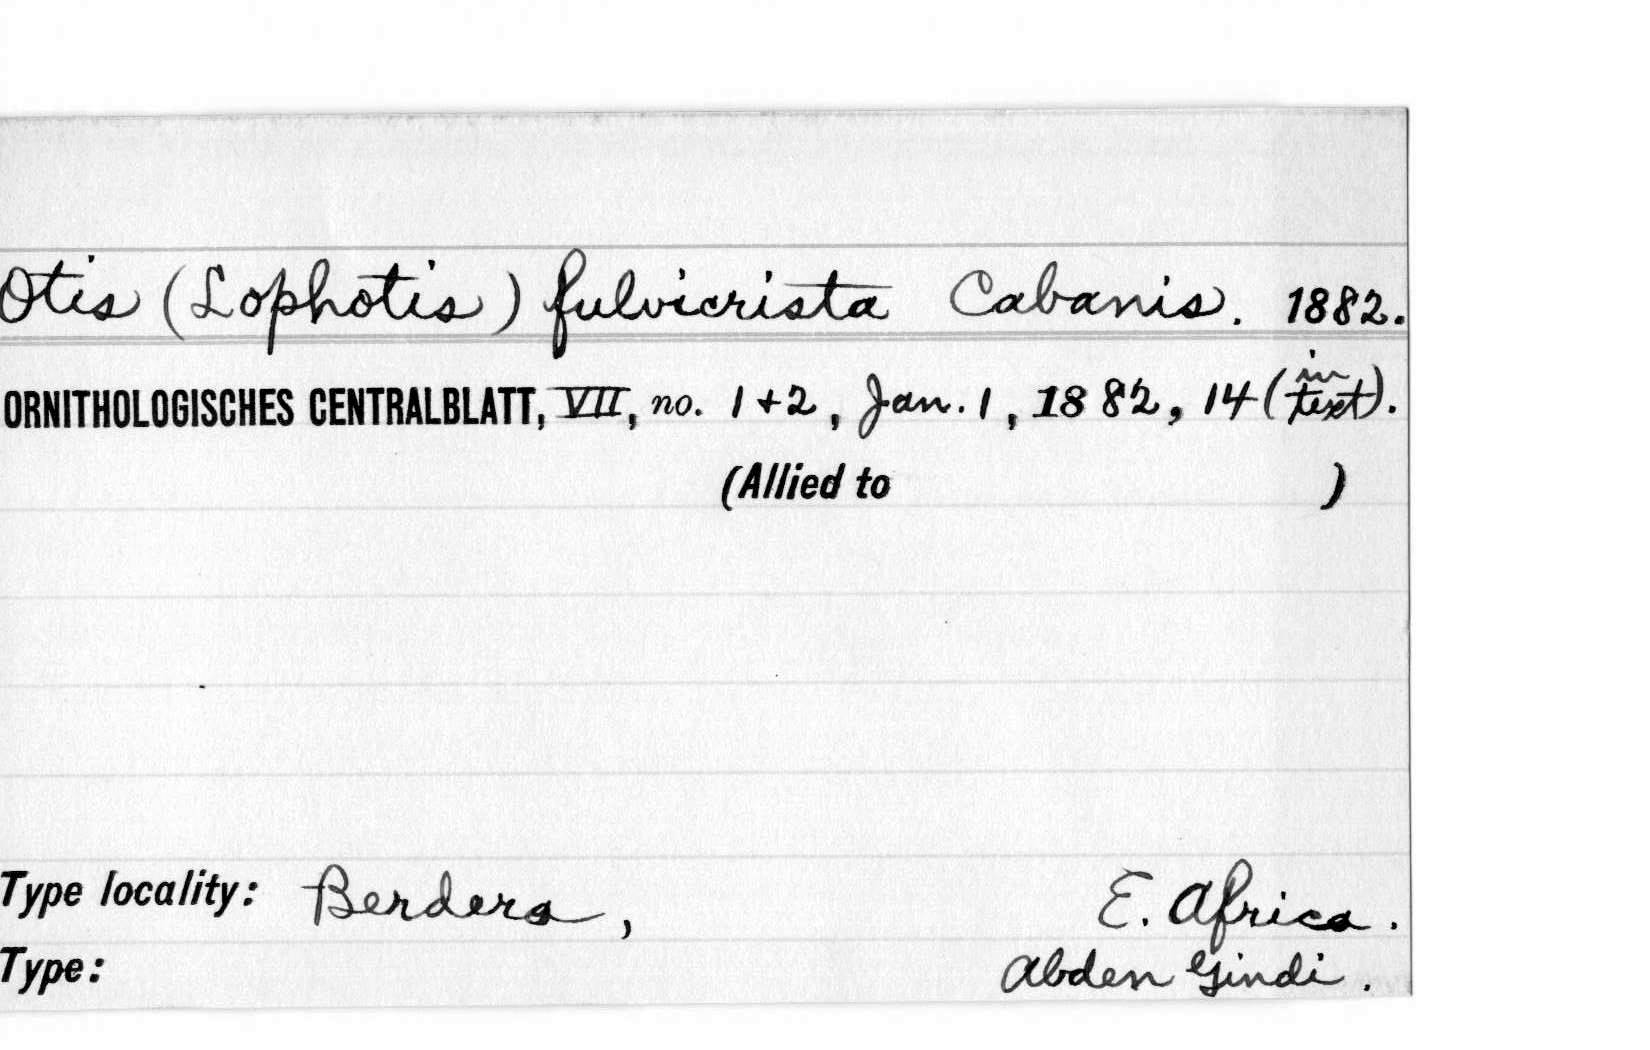 Otis (Lophotis) fulvicrista Cabanis. 1882.
ORNITHOLOGISCHES CENTRALBLATT, VII, no. 1+2, Jan. 1, 1882, 14 (in text).
(Allied to )
Type locality: Berdera, E. Africa.
Type: Abden Gindi.